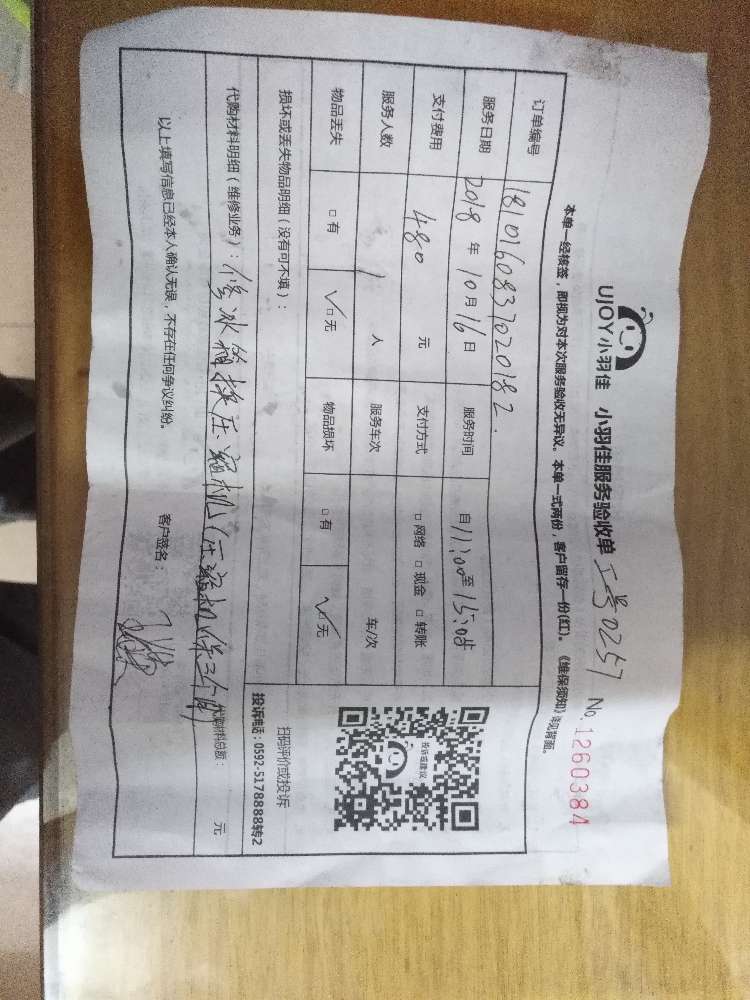 UJOY小羽佳 小羽佳服务验收单 工号0257 No.1260384
本单一经核签,即视为对本次服务验收无异议。本单一式两份,客户留存一份(红)。《维保须知》详见背面。
订单编号 1810160837020182
服务日期 2018年10月16日 服务时间 自11:00至15:00时
支付费用 480元 支付方式 □网络 □现金 □转账
服务人数 1人 服务车次 车/次
物品丢失 □有 ✓□无 物品损坏 □有 ✓□无
投诉或建议
扫码评价或投诉
投诉电话:0592-5178888转2
损坏或丢失物品明细(没有可不填):
代购材料明细(维修业务):修冰箱换压缩机(压缩机保三个月)
代购材料总额: 元
以上填写信息已经本人确认无误,不存在任何争议纠纷。 客户签名: